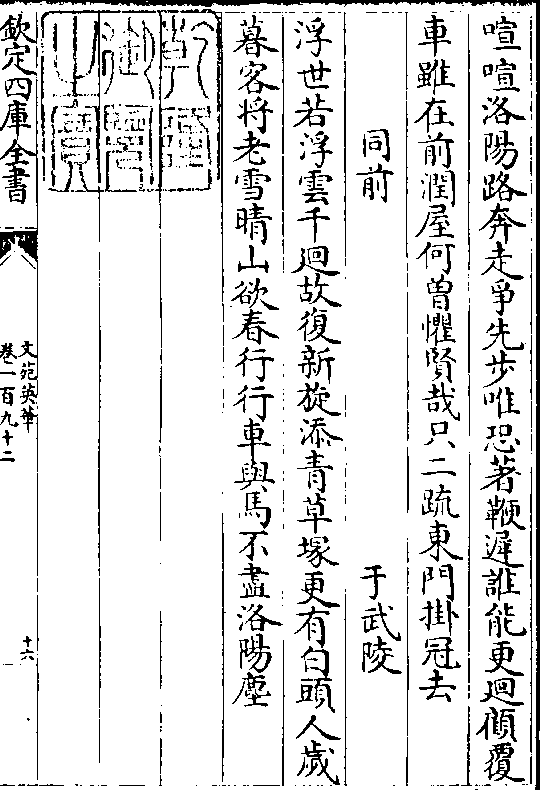 喧喧洛陽路奔走爭先步唯恐著鞭遲誰能更迴顧覆
車雖在前潤屋何曾懼賢哉只二疏東門掛冠去
同前
于武陵
浮世若浮雲千迴故復新旋添青草塚更有白頭人歲
暮客将老雪晴山欲春行行車與馬不盡洛陽塵
乾隆御覽之寶
欽定四庫全書
文苑英華
卷一百九十二
十六